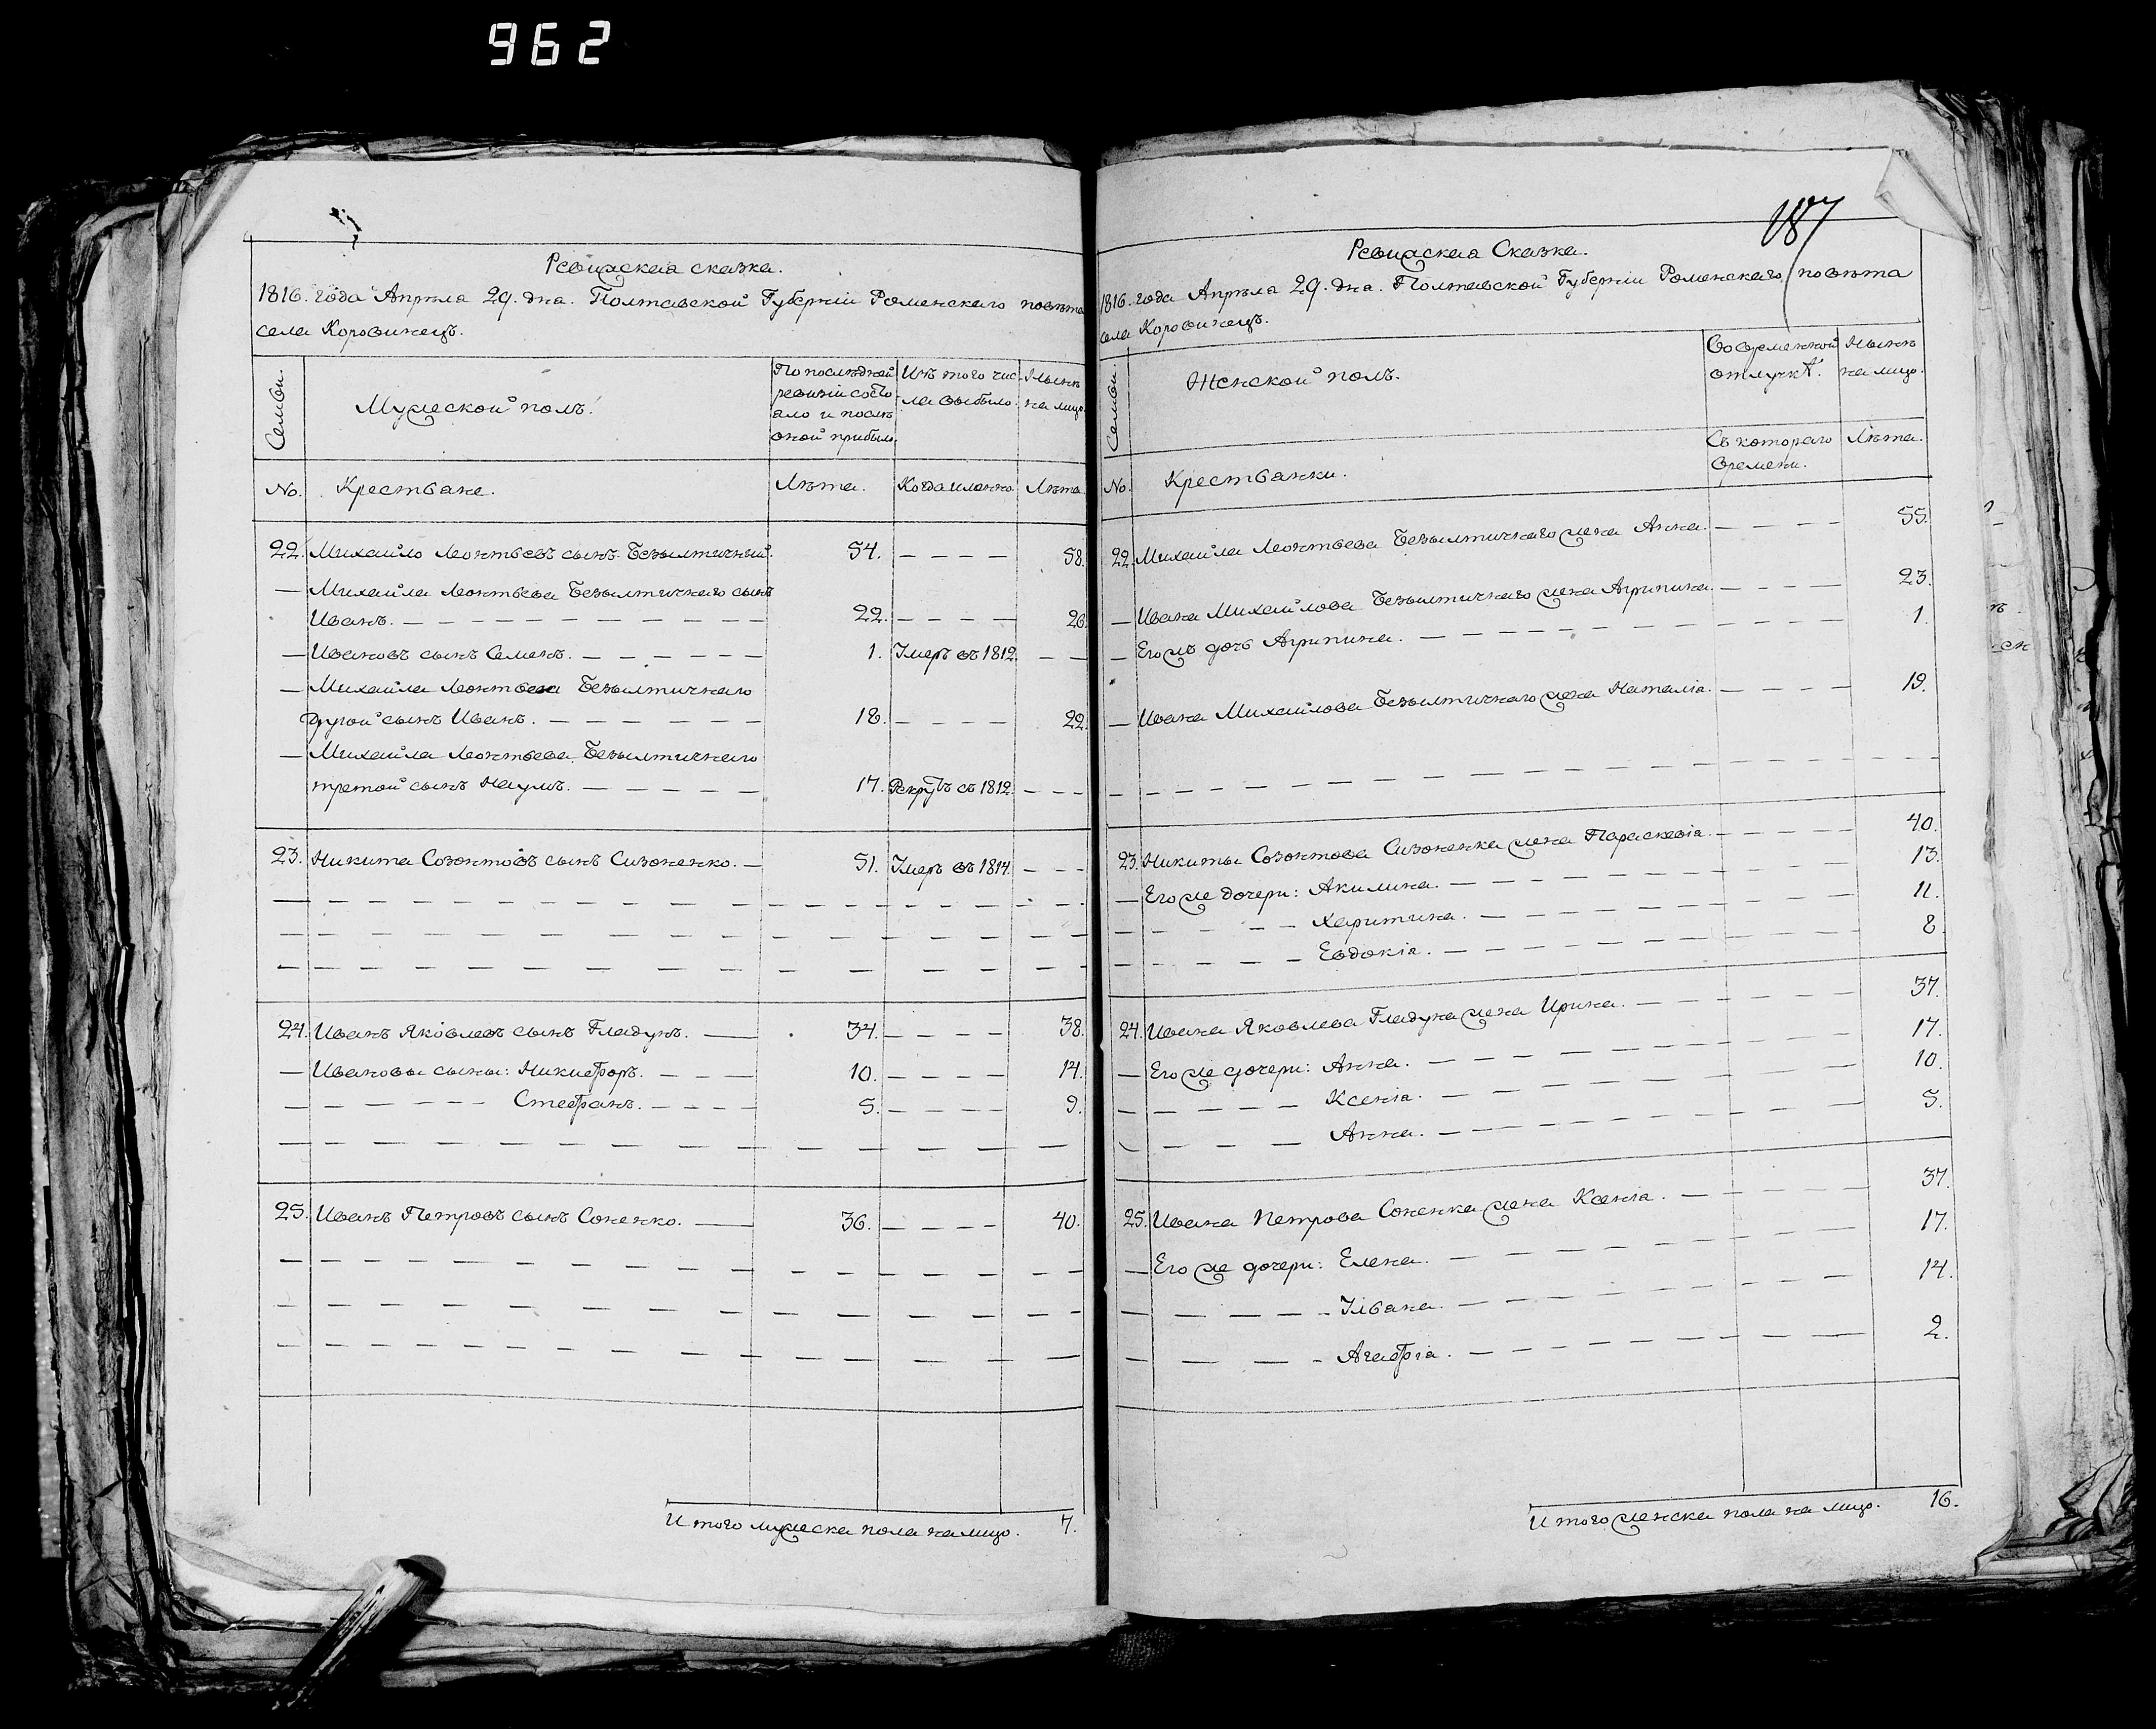 962
Ревижская сказка.
1816. года Апрѣла 29. дна. Полтавской Губерніи Роменскаго повѣта
села Коровинецъ.
Семьи.
Мужеской полъ.
По послѣдней ревизіи состо
яло и послѣ
оной прибыло.
Изъ того чис-
ла выбыло.
Нынѣ
на лицо.
No. Крестьяне. Лѣта. Когда именно Лѣта
22. Михайло Леонтьевъ сынъ Безылтичный. 54. — — — — 58.
— Михайла Леонтьева Безылтичнаго сынъ
Иванъ. — — — — 22. — — — — 26.
— Ивановъ сынъ Семенъ. — — — — 1. Умеръ въ 1812. — —
— Михайла Леонтьева Безылтичнаго
другой сынъ Иванъ. — — — — 18. — — — — 22.
— Михайла Леонтьева Безылтичнаго
третой сынъ Наумъ. — — — — 17. Рекрутъ съ 1812. — — —
23. Никита Созонтовъ сынъ Сизоненко. — 51. Умеръ въ 1814. — — —
24. Иванъ Яковлевъ сынъ Гладунъ. — 34. — — — — 38.
— Ивановы сыны: Никифоръ. — — — 10. — — — — 14.
— — — — Стефанъ. — — — — 5. — — — — 9.
25. Иванъ Петровъ сынъ Соненко. — 36. — — — — 40.
Итого мужеска пола на лицо. 7.
187
Ревижская Сказка.
1816. года Апрѣла 29. дна. Полтавской Губерніи Роменскаго повѣта
села Коровинецъ.
Семьи.
Женской полъ.
Во временной
отлучкѣ.
Нынѣ
на лицо.
Съ котораго
времени.
Лѣта.
No. Крестьянки.
22. Михайла Леонтьева Безылтичнаго жена Анна. — — — — 55.
— Ивана Михайлова Безылтичнаго жена Агрипина. — — — — 23.
— Его жъ дочь Агрипина. — — — — 1.
— Ивана Михайлова Безылтичнаго жена Наталія. — — — — 19.
23. Никиты Созонтова Сизоненка жена Параскевія. — — — — 40.
— Его же дочери: Акилина. — — — — 13.
— — — — Харитина. — — — — 11.
— — — — Евдокія. — — — — 8.
24. Ивана Яковлева Гладуна жена Ирина. — — — — 37.
— Его же дочери: Анна. — — — — 17.
— — — — Ксенія. — — — — 10.
— — — — Анна. — — — — 5.
25. Ивана Петрова Соненка жена Ксенія. — — — — 37.
— Его же дочери: Елена. — — — — 17.
— — — — Уліана. — — — — 14.
— — — — Агафія. — — — — 2.
Итого женска пола на лицо. 16.